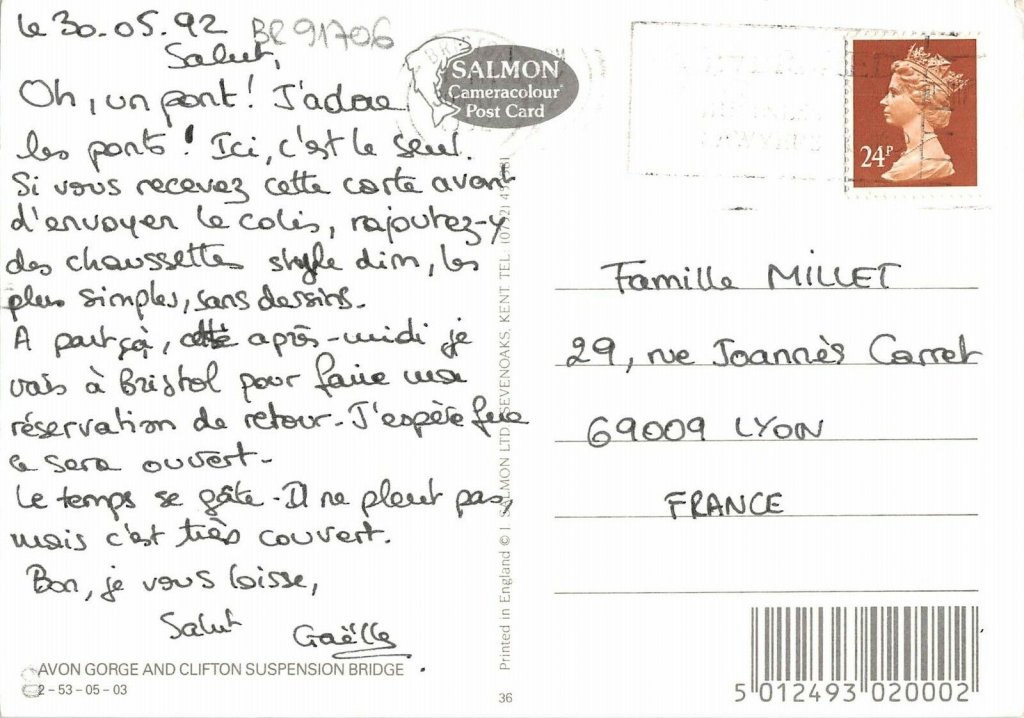 le 30.05.92
BR91706
Salut,
Oh, un pont! J'adore
les ponts! Ici, c'est le seul.
Si vous recevez cette carte avant
d'envoyer le colis, rajoutez-y
des chaussettes style dim, les
plus simples, sans dessins.
A part ça, cette après-midi je
vais à Bristol pour faire ma
réservation de retour. J'espère que
ce sera ouvert.
Le temps se gâte. Il ne pleut pas,
mais c'est très couvert.
Bon, je vous laisse,
Salut
Gaëlle
AVON GORGE AND CLIFTON SUSPENSION BRIDGE
2-53-05-03
SALMON
Cameracolour
Post Card
Printed in England © J. SALMON LTD. SEVENOAKS, KENT TEL:
36
24P
Famille MILLET
29, rue Joannès Carret
69009 LYON
FRANCE
5 012493 020002